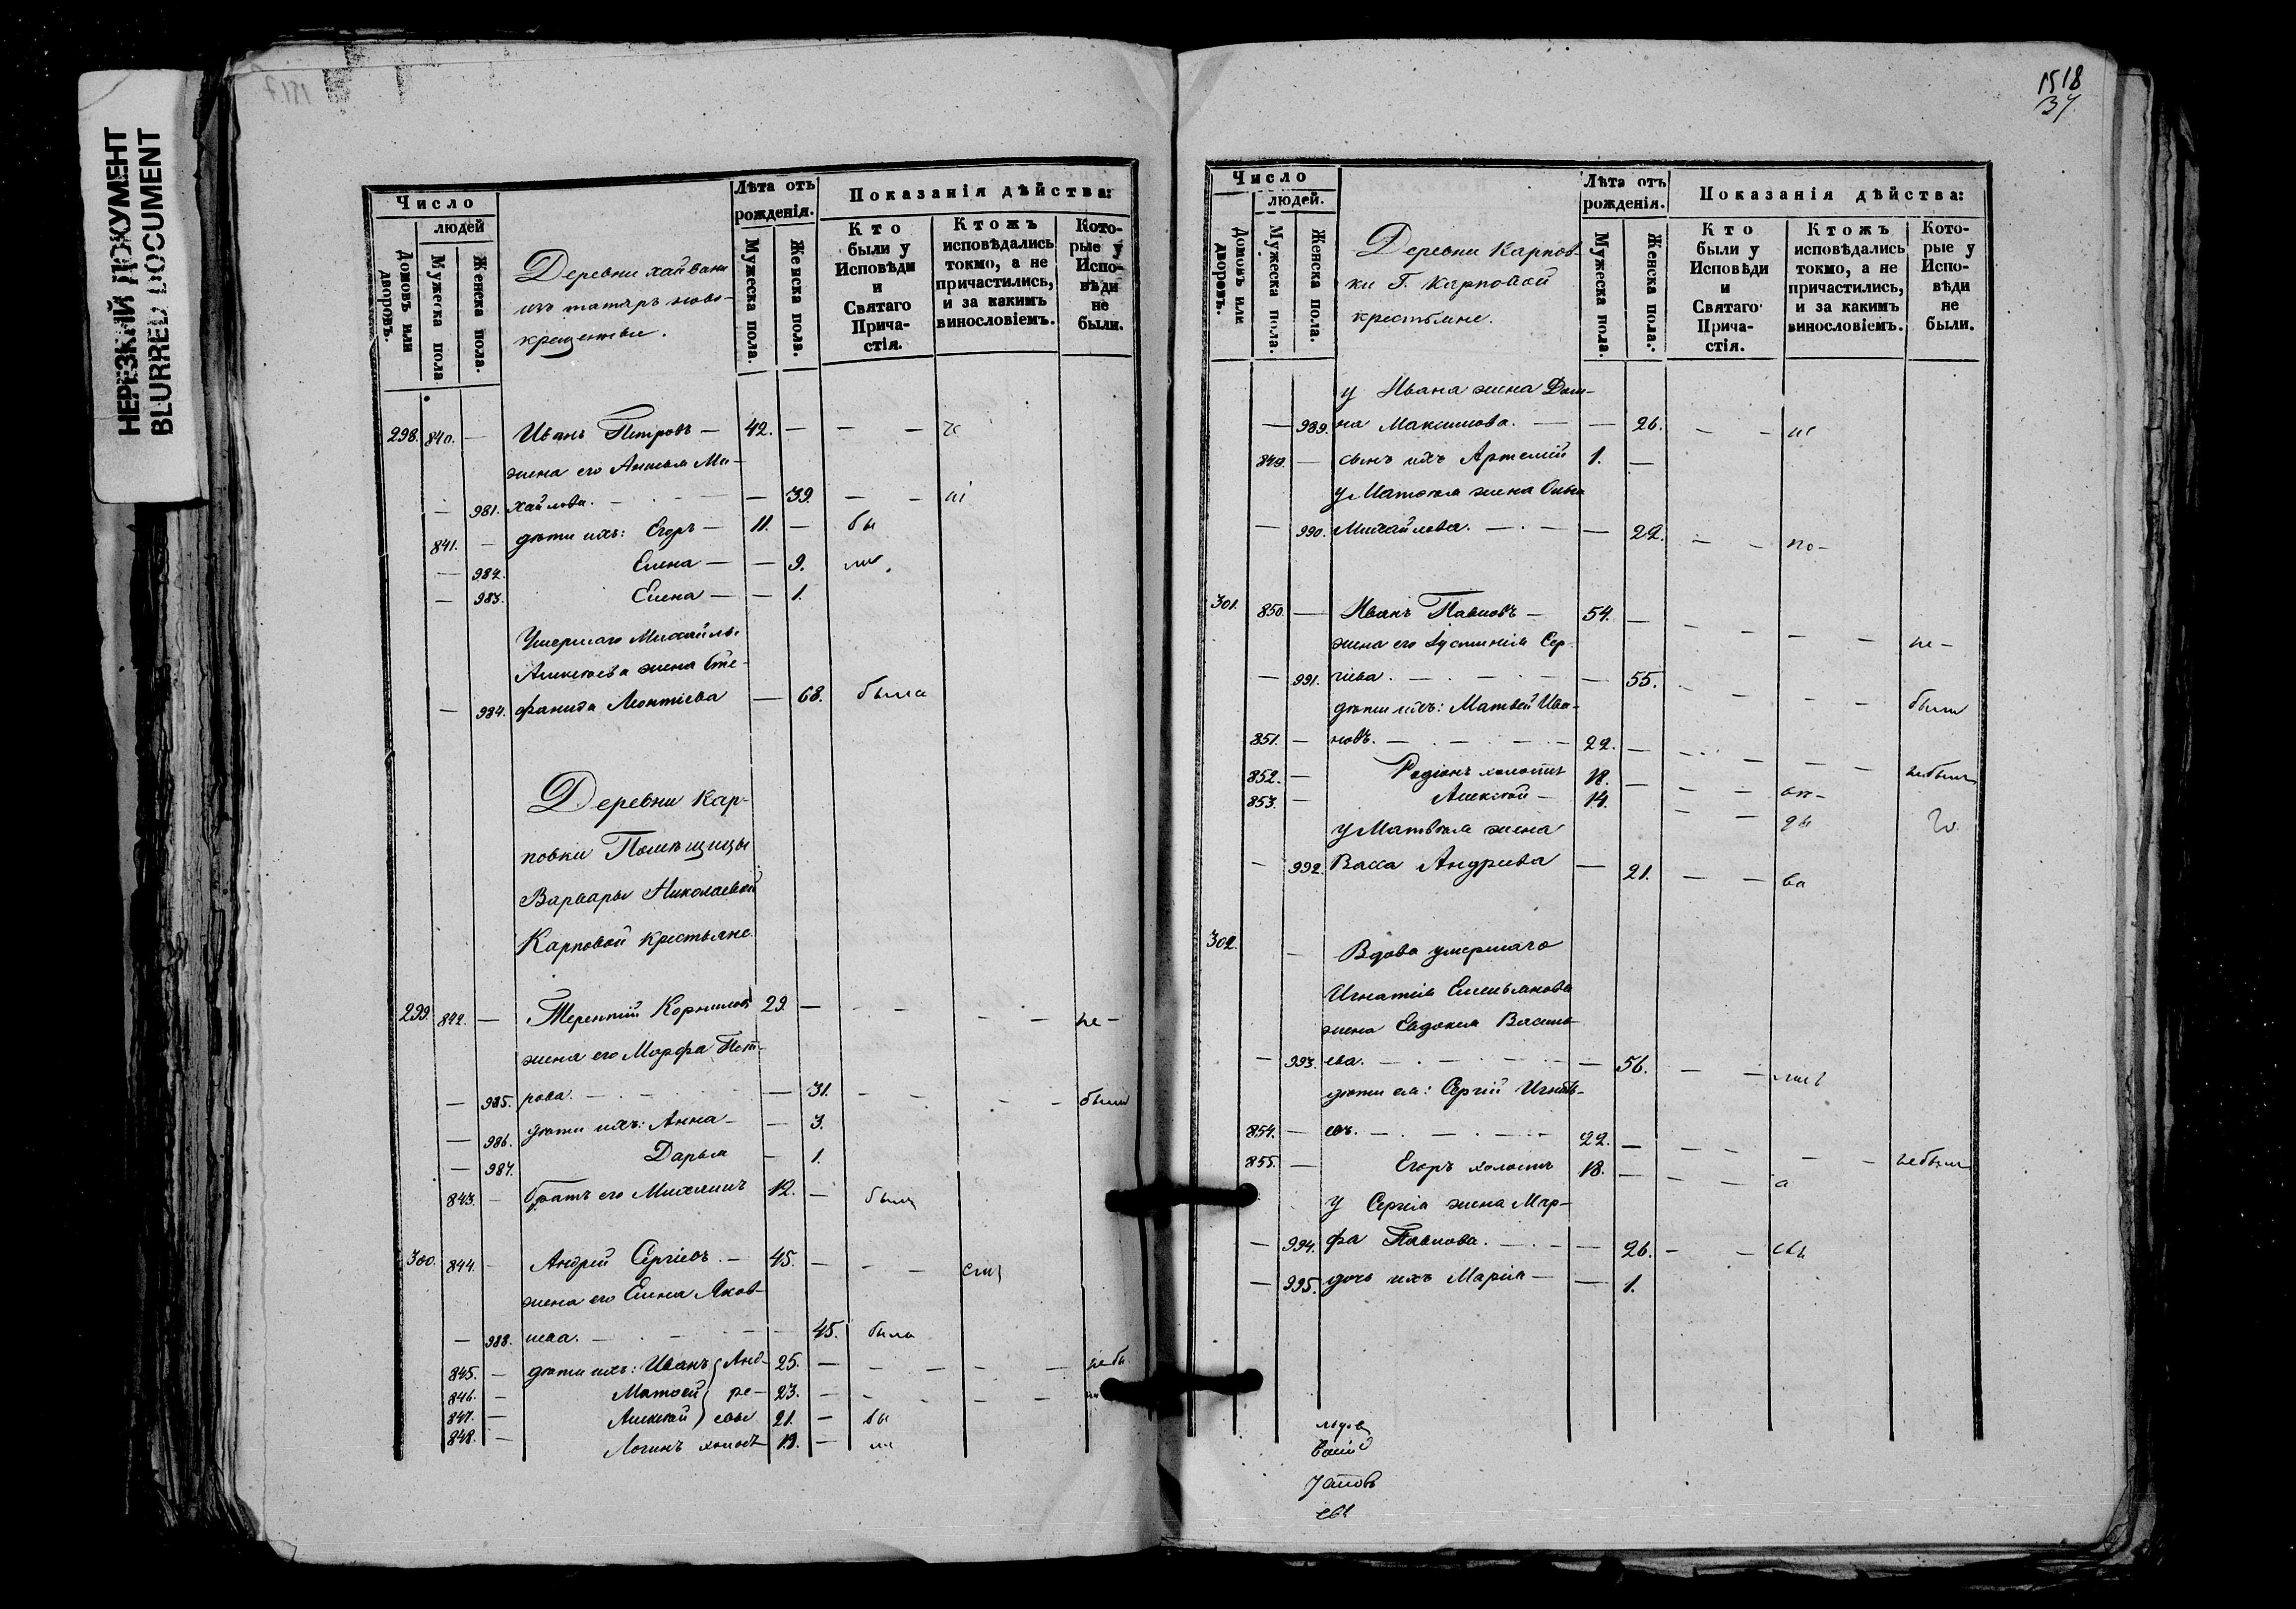 НЕРЕЗКИЙ ДОКУМЕНТ
BLURRED DOCUMENT
Число
людей
Домовъ или дворовъ.
Мужеска пола
Женска пола.
Деревни хайвани
изъ татаръ ново-
крещенъи.
Лѣта отъ
рожденія.
Мужеска пола.
Женска пола.
Показанія дѣйства:
Кто были у Исповѣди и Святаго Прича- стія.
Ктожъ исповѣдались токмо, а не причастились, и за какимъ винословіемъ.
Кото- рые у Испо- вѣди не были.
298. 840. — Иванъ Петровъ — 42. — — —
жена его Анисья Ми-
— 981. хайлова. — — 39. — —
841. — дѣти ихъ: Егоръ — 11. — бы
— 982. Елена — — 9. ли.
— 983. Елена — — 1.
Умершаго Михайлы
Алексѣева жена Сте-
— 984. фанида Леонтіева — 68. была
Деревни Кар-
повки Помѣщицы
Варвары Николаевой
Карповой крестьяне.
299. 842. — Терентій Корниловъ 29. — — — — — не —
жена его Марфа Пет-
— 985. рова. — — 31. — — — — были
— 986. дѣти ихъ: Анна — — 3.
— 987. Дарья — 1.
843. — братъ его Михаилъ 12. — былъ
300. 844. — Андрей Сергіевъ. — 45. — — —
жена его Елена Яков-
— 988. лева. — — 45. была
845. — дѣти ихъ: Иванъ Анд- 25. — — — — — небы
846. — Матвей ре- 23. — — — —
847. — Алексѣй евы 21. — бы
848. — Логинъ холостъ 19. — ли
1518
37
Число
людей.
Домовъ или дворовъ.
Мужеска пола.
Женска пола.
Деревни Карпов-
ки Г. Карповой
крестьяне.
Лѣта отъ
рожденія.
Мужеска пола.
Женска пола.
Показанія дѣйства:
Кто были у Исповѣди и Святаго Прича- стія.
Ктожъ исповѣдались токмо, а не причастились, и за какимъ винословіемъ.
Кото- рые у Испо- вѣди не были.
у Ивана жена Дом-
— 989. на Максимова. — — 26. — —
849. — сынъ ихъ Артемій 1. —
у Матвѣя жена Ольга
— 990. Михайлова. — — 22. — — по-
301. 850. — Иванъ Павловъ — 54. — — — — — не —
жена его Іустинія Сер-
— 991. гіева. — — 55. — — — — были
дѣти ихъ: Матвей Ива-
851. — новъ. — 22. — — — — — небылъ
852. — Родіонъ холостъ 18. — — —
853. — Алексѣй — 14. — —
у Матвѣя жена
— 992. Васса Андреева — 21. — —
302. — Вдова умершаго
Игнатія Емельянова
жена Евдокия Василь-
— 993. ева. — — 56. — —
дѣти ея: Сергій Игнать-
854. — евъ. — 22. — — — — — небылъ
855. — Егоръ холостъ 18. — — —
у Сергія жена Мар-
— 994. фа Павлова. — — 26. — —
— 995. дочь ихъ Марія — — 1.